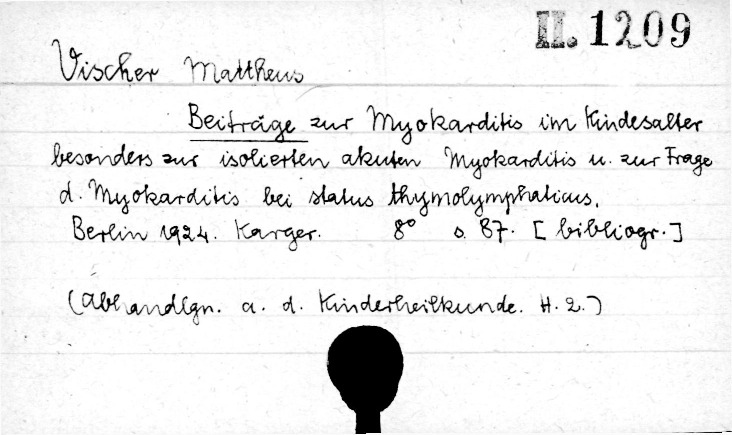 II. 1209
Vischer Mattheus
Beiträge zur Myokarditis im Kindesalter
besonders zur isolierten akuten Myokarditis u. zur Frage
d. Myokarditis bei status thymolymphaticus.
Berlin 1924. Karger. 8° s. 87. [bibliogr.]
(Abhandlgn. a. d. Kinderheilkunde. H. 2.)